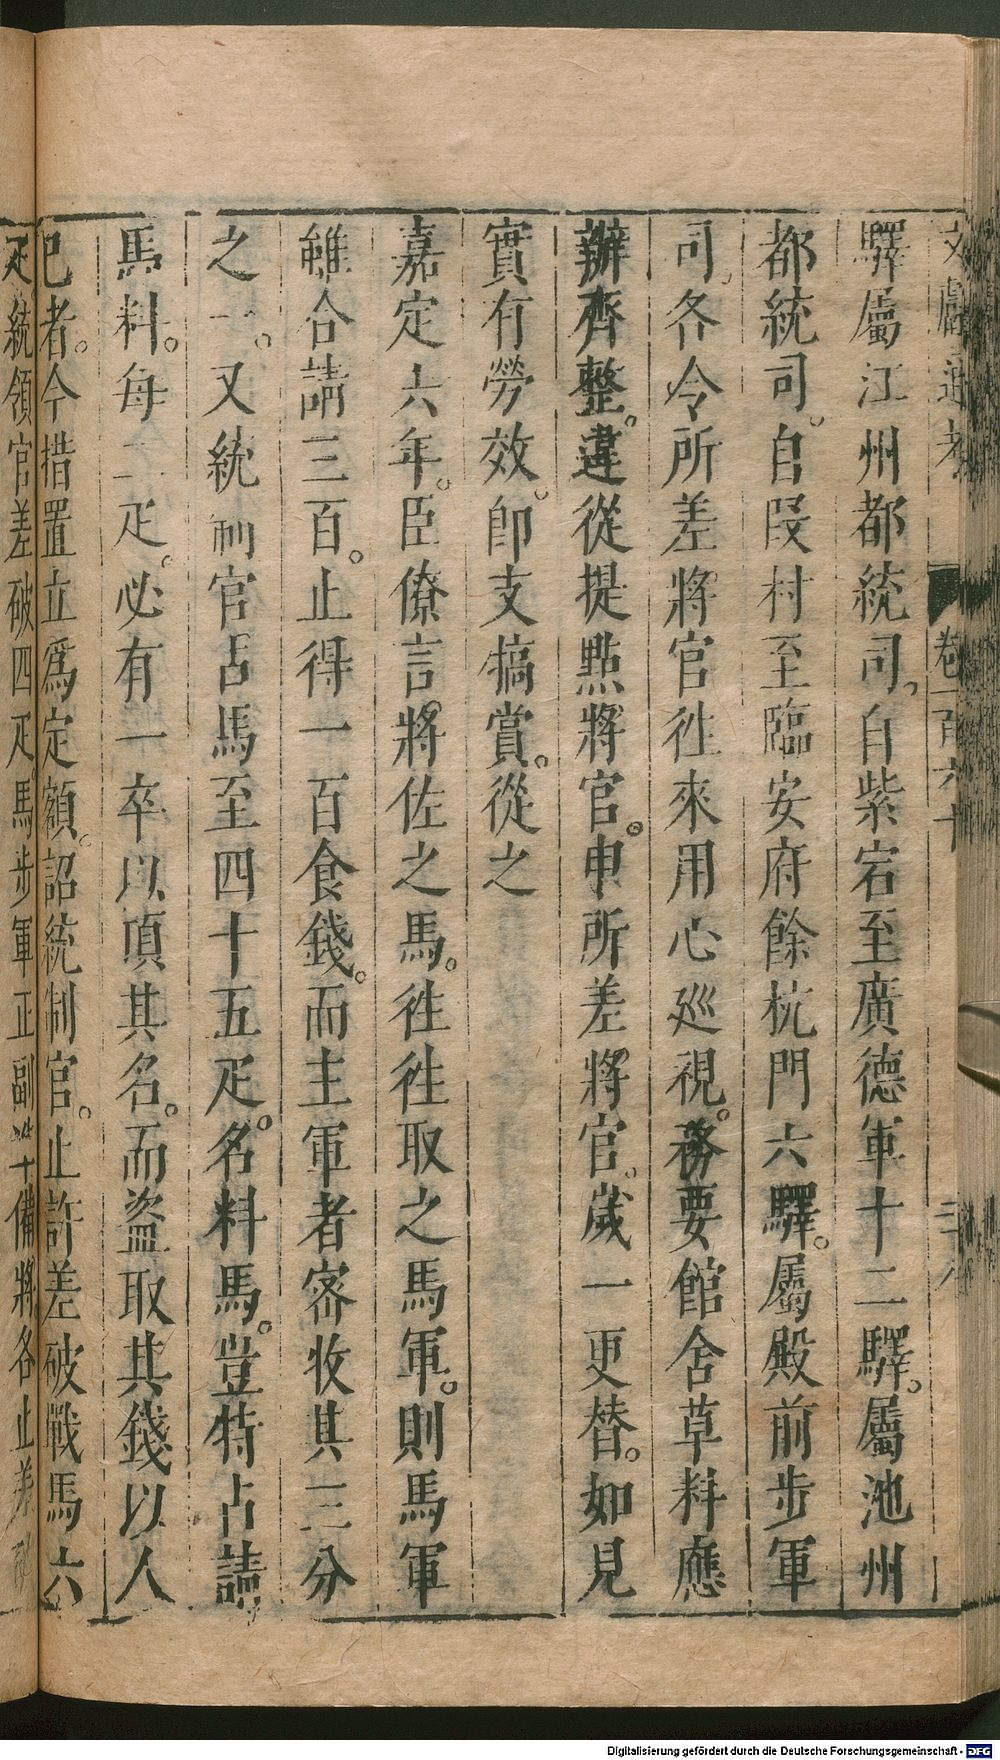 文獻通考 卷一百六十
驛屬江州都統司。自紫宕至廣德軍十二驛。屬池州
都統司。自段村至臨安府餘杭門六驛。屬殿前步軍
司。各令所差將官徃來用心巡視。務要館舍草料應
辦齊整。違從提點將官。申所差將官。歲一更替。如見
實有勞效。卽支犒賞。從之
嘉定六年。臣僚言。將佐之馬。徃徃取之馬軍。則馬軍
雖合請三百。止得一百食錢。而主軍者密收其三分
之一。又統制官占馬至四十五疋。名料馬。豈特占請
馬料。每二疋。必有一卒以頂其名。而盜取其錢以人
已者。今措置立爲定額。詔統制官。止許差破戰馬六
疋統領官差破四疋馬步軍正副 備將各止差破
Digitalisierung gefördert durch die Deutsche Forschungsgemeinschaft - DFG